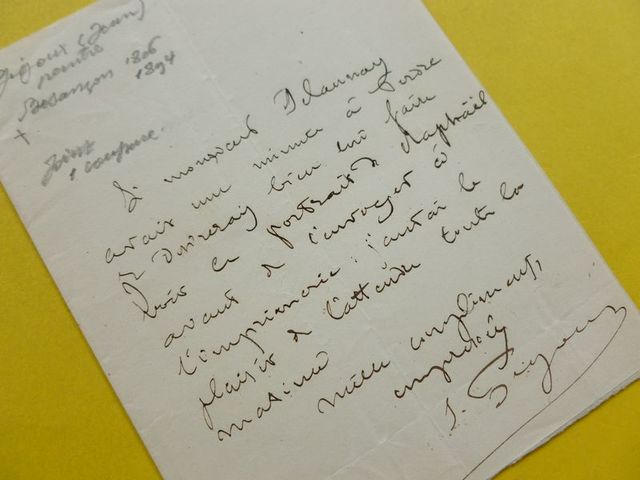 Gigoux (Jean)
peintre
Besançon 1806
+ 1894
Joint
1 coupure.
Si monsieur Delaunay
avait une minute à perdre
je bien me faire
voir ce portrait de Raphaël
avant de l'envoyer à
l'imprimerie : j'aurai le
plaisir de l'attendre toute la
matinée
mille compliments
empressés
J. Gigoux